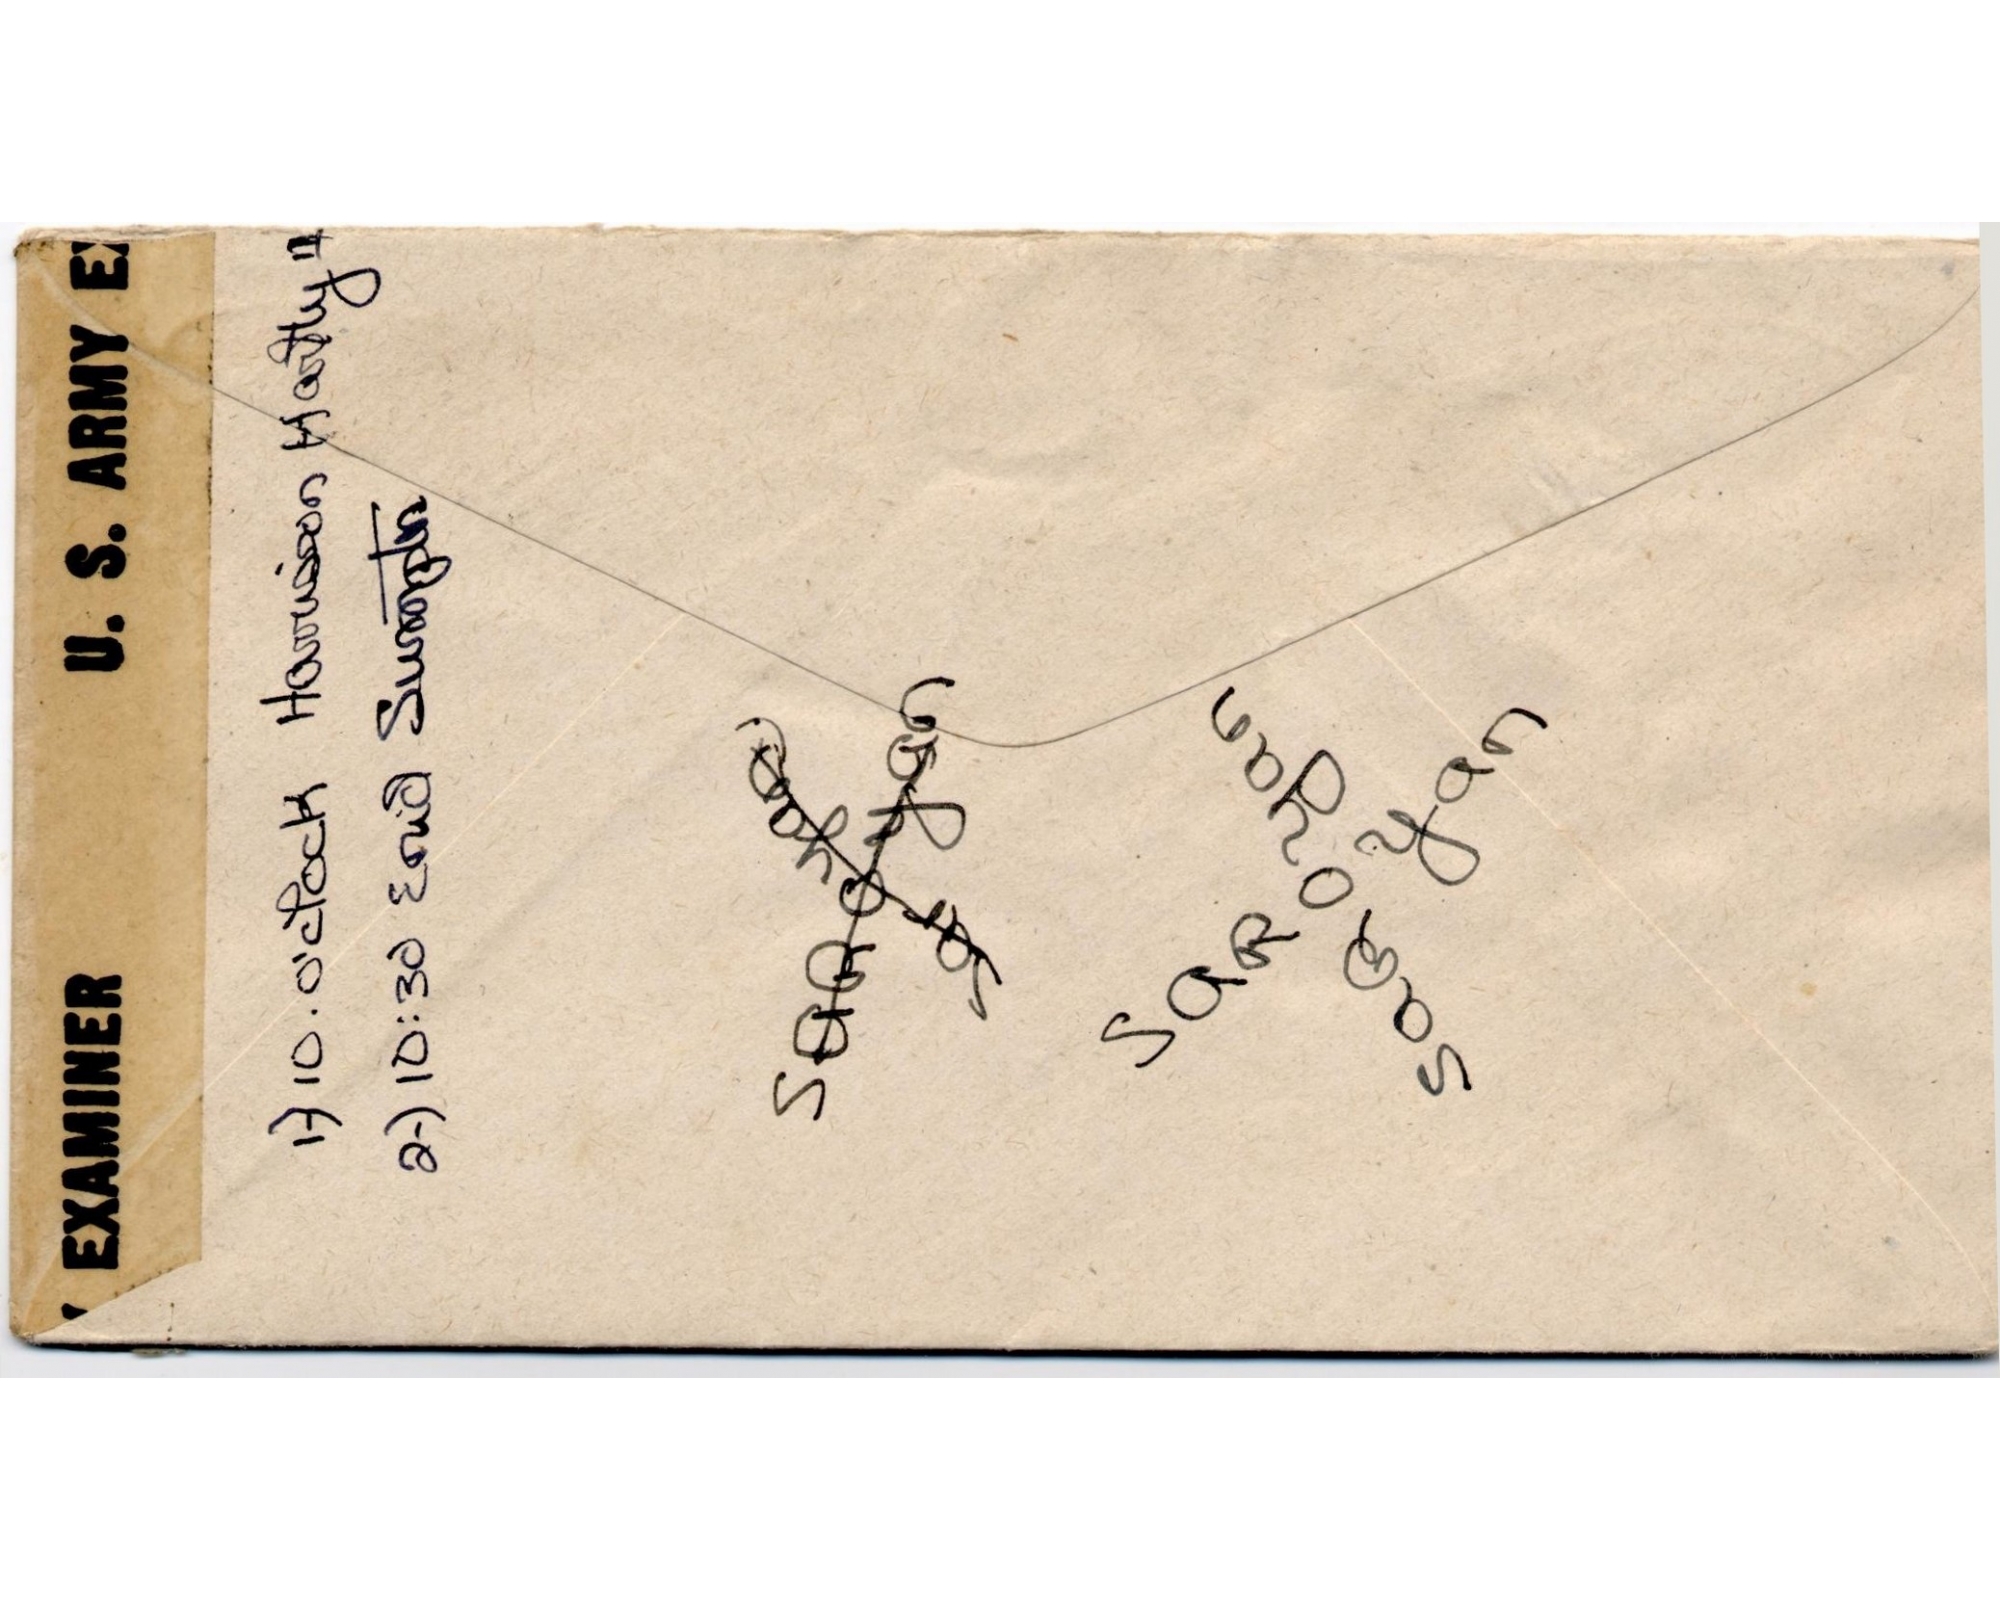 EXAMINER U. S. ARMY EX
1-) 10. o'clock Harrison Hartly "
2-) 10:30 Enid
SAROyan
Saroyan
SAROyan
SaRoyan